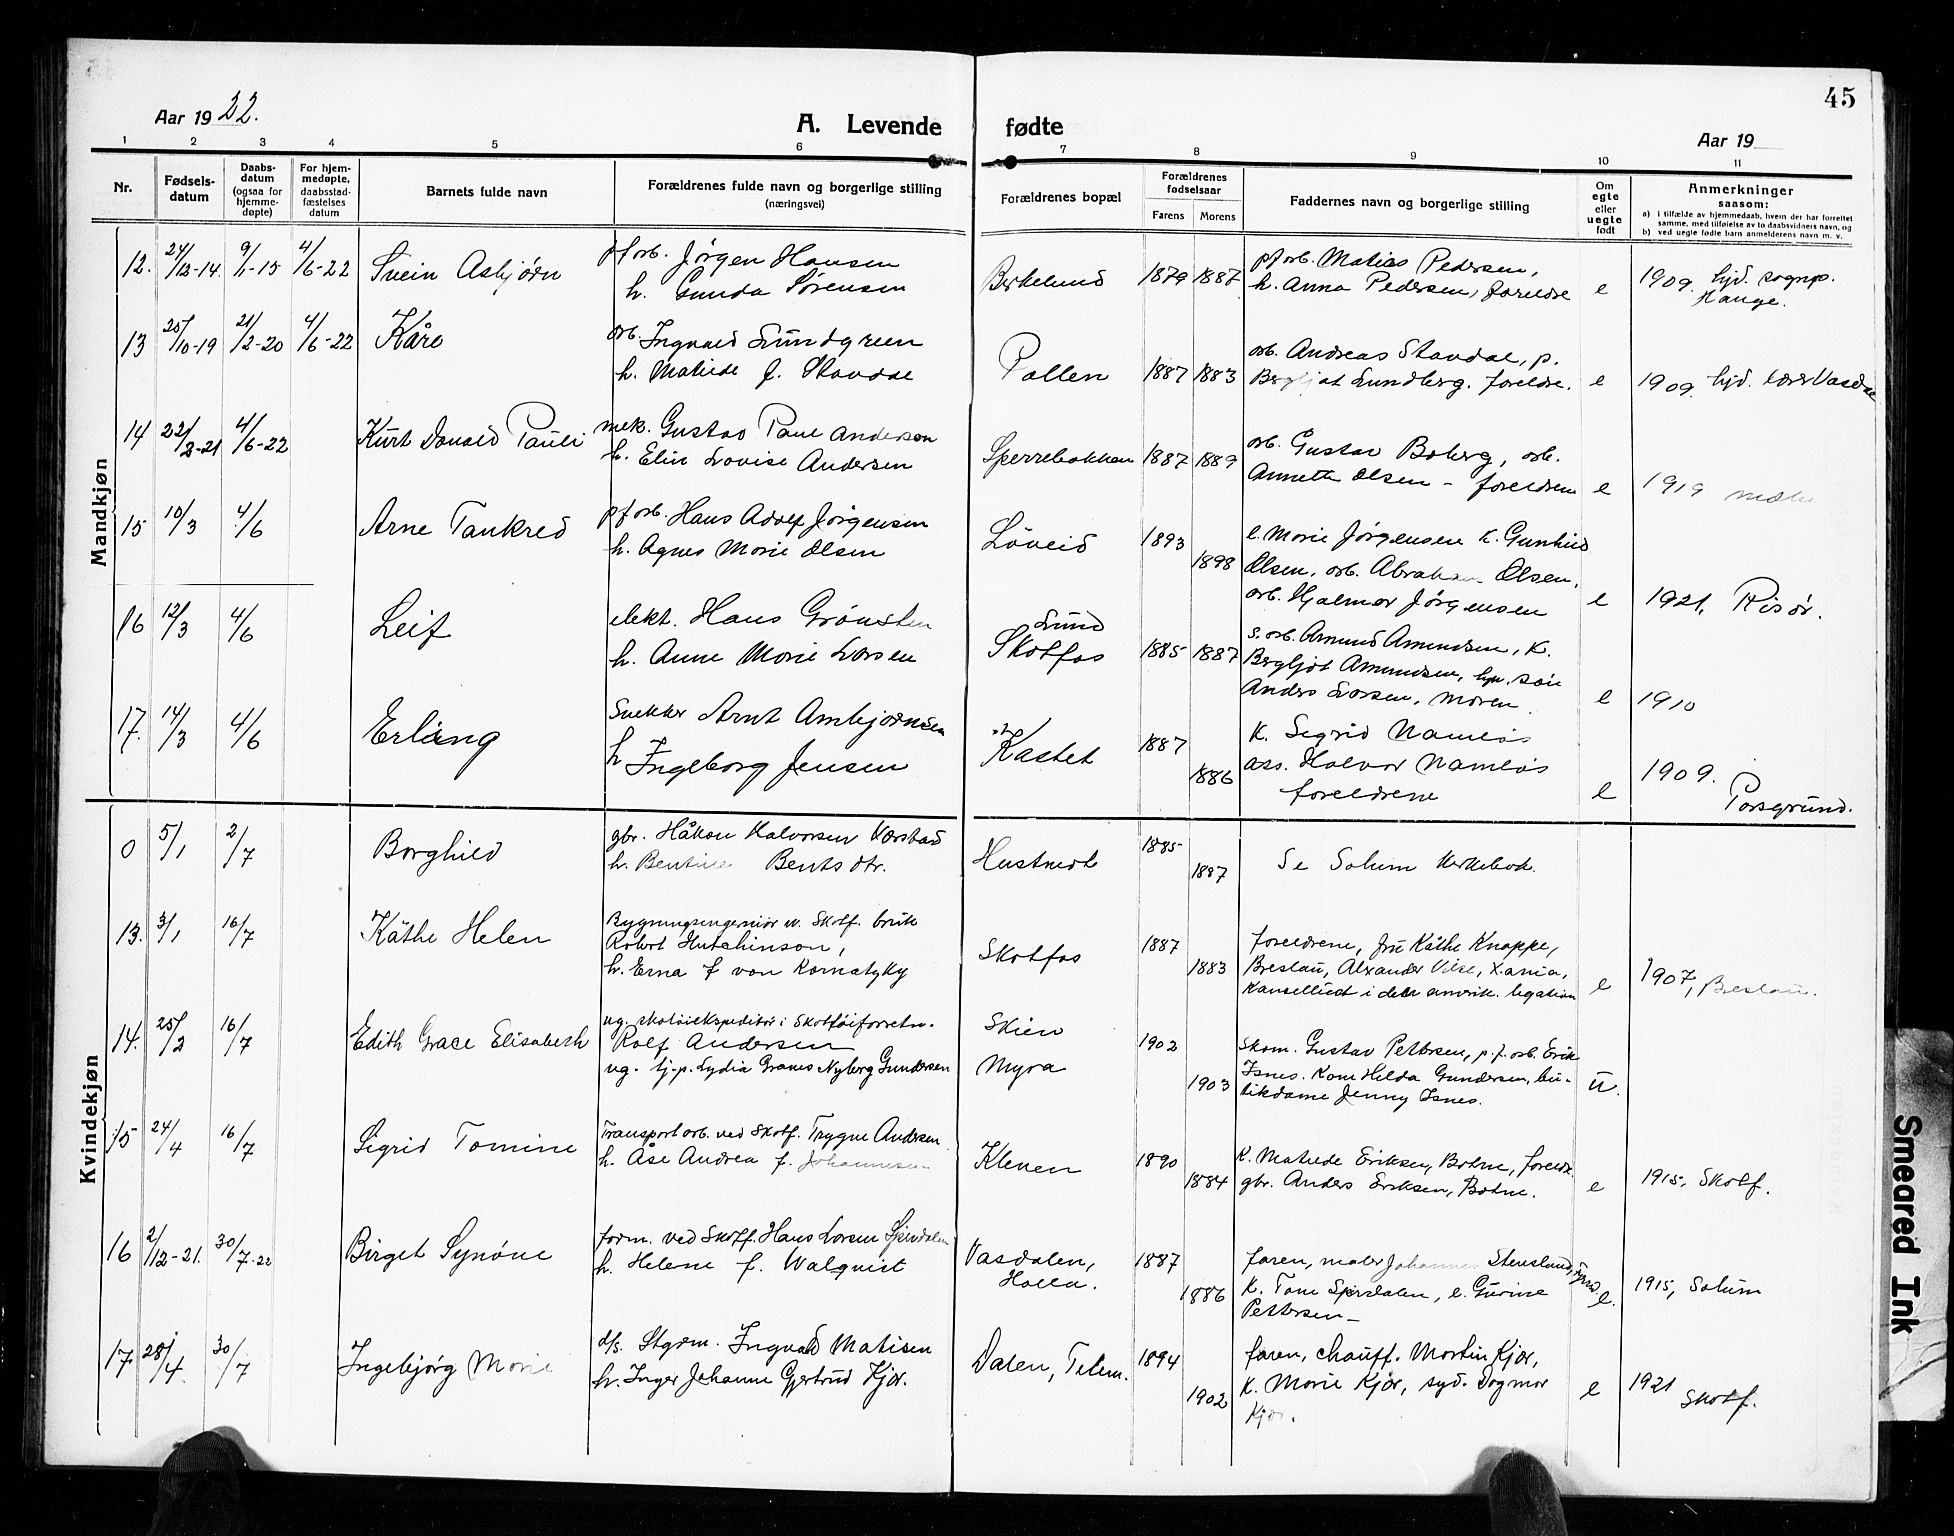 45
Aar 19 22.
A. Levende fødte
Aar 19
1 2 3 4 5 6 7 8 9 10 11
Nr.
Fødsels-
datum
Daabs-
datum
(ogsaa for
hjemme-
døpte)
For hjem-
medøpte,
daabsstad-
fæstelses
datum
Barnets fulde navn
Forældrenes fulde navn og borgerlige stilling
(næringsvei)
Forældrenes bopæl
Forældrenes
fødselsaar
Farens Morens
Faddernes navn og borgerlige stilling
Om
egte
eller
uegte
født
Anmerkninger
saasom:
a) i tilfælde av hjemmedaab, hvem der har forrettet
samme, med tilføielse av to daabsvidners navn, og
b) ved uegte fødte barn anmelderens navn m. v.
Mandkjøn
12. 24/12-14. 9/1-15 4/6-22 Svein Asbjørn
pforb. Jørgen Hansen
h. Gunda Sørensen
Berkelund 1879 1887
pforb. Matias Pedersen,
h. Anna Pedersen, foreldre e
1909. hjd. sognp.
Hauge.
13 25/10-19 21/2-20 4/6-22 Kåre
arb. Ingvald Lundgreen
h. Matilde f. Stavdal
Pollen 1887 1883
arb. Andreas Stavdal, p.
Bergljot Lundberg. foreldre. e
1909. hjd. lærer Vasdal
14 22/2-21 4/6-22 Kurt Donald Pauli
mek. Gustav Paul Andersen
h. Elin Lovise Andersen
Sperrebakken 1887 1889
arb. Gustav Boberg, arb.
Annette Olsen - foreldrene e
1919
15 10/3 4/6 Arne Tankred
pforb. Hans Adolf Jørgensen
h. Agnes Marie Olsen
Løveid 1893 1898
e. Marie Jørgensen K. Gunhild
Olsen, arb. Abraham Olsen,
arb. Hjalmar Jørgensen e
1921. Risør.
16 12/3 4/6 Leif
elekt. Hans Grønsten
h. Anne Marie Larsen
Lund
Skotfos 1885 1887
s. arb. Amund Amundsen, K.
Bergljot Amundsen,
Anders Larsen, moren. e
1910
17. 14/3 4/6 Erling
Snekker Arnt Ambjørnsen
h Ingeborg Jensen
Kastet 1887 1886
K. Sigrid Namløs
ass. Halvor Namløs
foreldrene e
1909.
Porsgrund.
Kvindekjøn
0 5/1 2/7 Borghild
gbr. Håkon Halvorsen Værstad
h. Bentine Bentsdtr.
Hustvedt 1885 1887
Se Solum Kirkebok.
13. 3/1 16/7 Käthe Helen
Bygningsingeniør v. Skotf. bruk
Robert Hutchinson,
h. Erna f von Kornatzky
Skotfos 1887 1883
foreldrene, fru Käthe Knappe,
Breslau, Alexander Vilse, Xania,
Kansellist i den amerik. legation e
1907, Breslau.
14. 25/2 16/7 Edith Grace Elisabeth
ug. skotøiekspeditør i Skotøiforretn.
Rolf Andersen
ug. tj.p. Lydia Granes Nyberg Gundersen
Skien
Myra 1902 1903
Skom. Gustav Pettersen, p.f. arb. Erik
Isnes. Kone Hilda Gundersen, bu-
tikdame Jenny Isnes. u.
15 24/4 16/7 Sigrid Tomine
Transportarb. ved Skotf. Trygve Andersen
h. Åse Andrea f. Johannesen
Kleven 1890 1884
K. Matilde Eriksen, Bohne, foreldr.
gbr. Anders Eriksen, Bohne. e
1915, Skotf.
16 2/12-21. 30/7-22 Birget Synøve
form. ved Skotf. Hans Larsen Sperdalen
h. Helene f. Walqvist
Vasdalen,
Holla. 1887 1886
faren, maler Johannes Stenslund,
K. Tone Sperdalen, e. Gurine
Pettersen e.
1915, Solum
17 28/4 30/7 Ingebjørg Marie
d/s. Stgrm. Ingvald Matisen
h. Inger Johanne Gjertrud Kjær.
Dalen, Telem. 1894 1902
faren, chauff. Martin Kjær,
K. Marie Kjær, syd. Dagmar
Kjær. e
1921
Skotf.
Smeared Ink